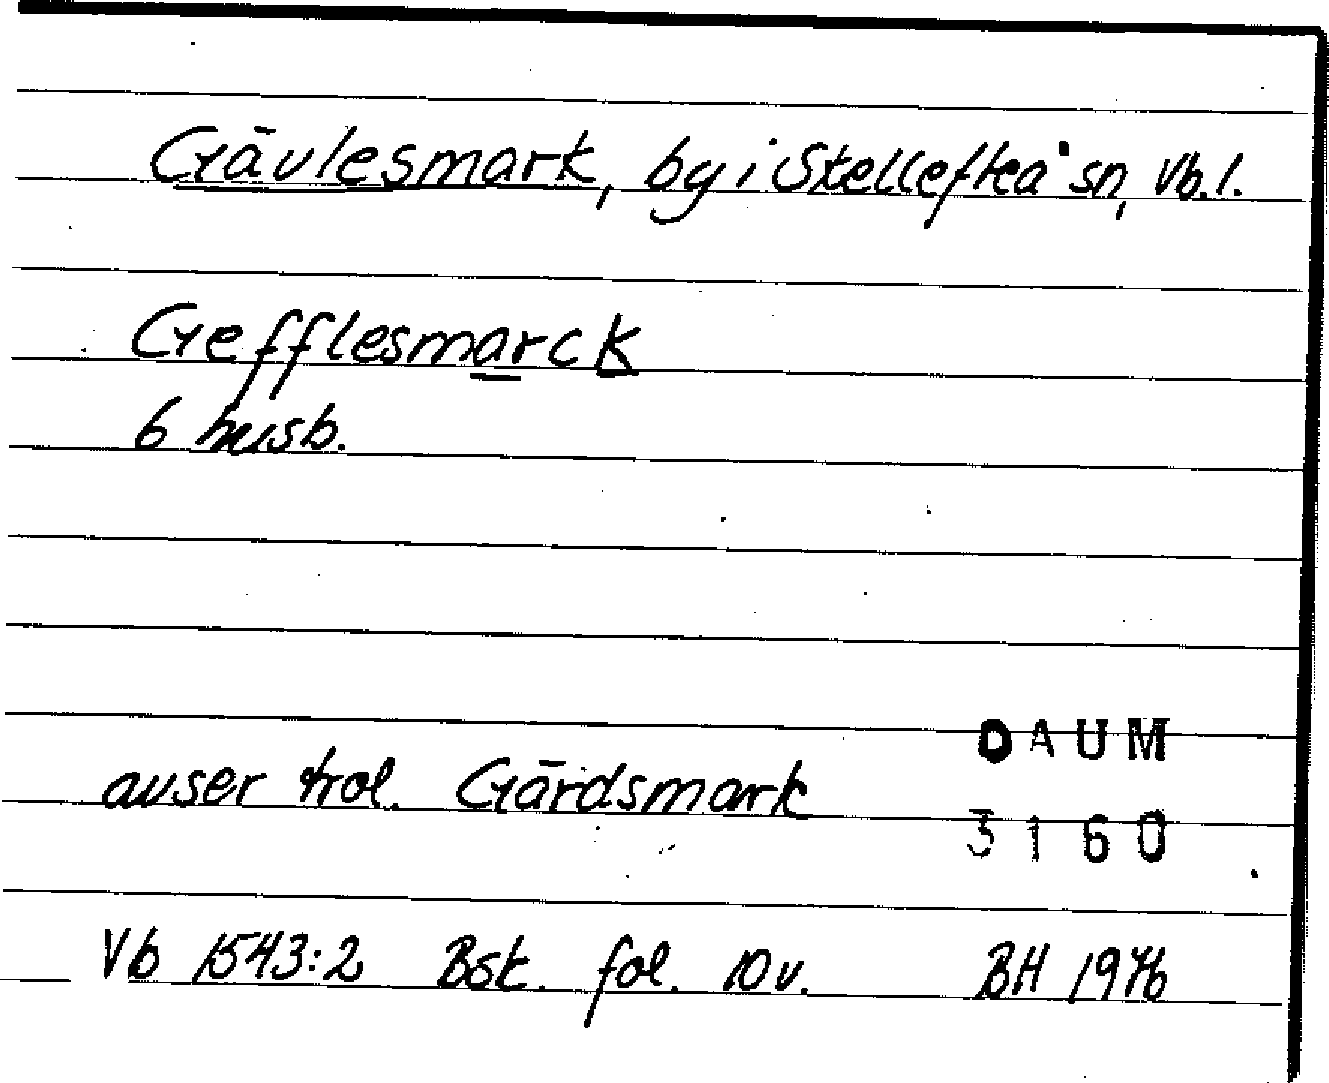 Gävlesmark, by i Skellefteå sn, Vb. l.
Gefflesmarck
6 husb.
DAUM
avser trol. Gärdsmark
3160
Vb 1543:2 Bsk. fol. 10 v. BH 1976